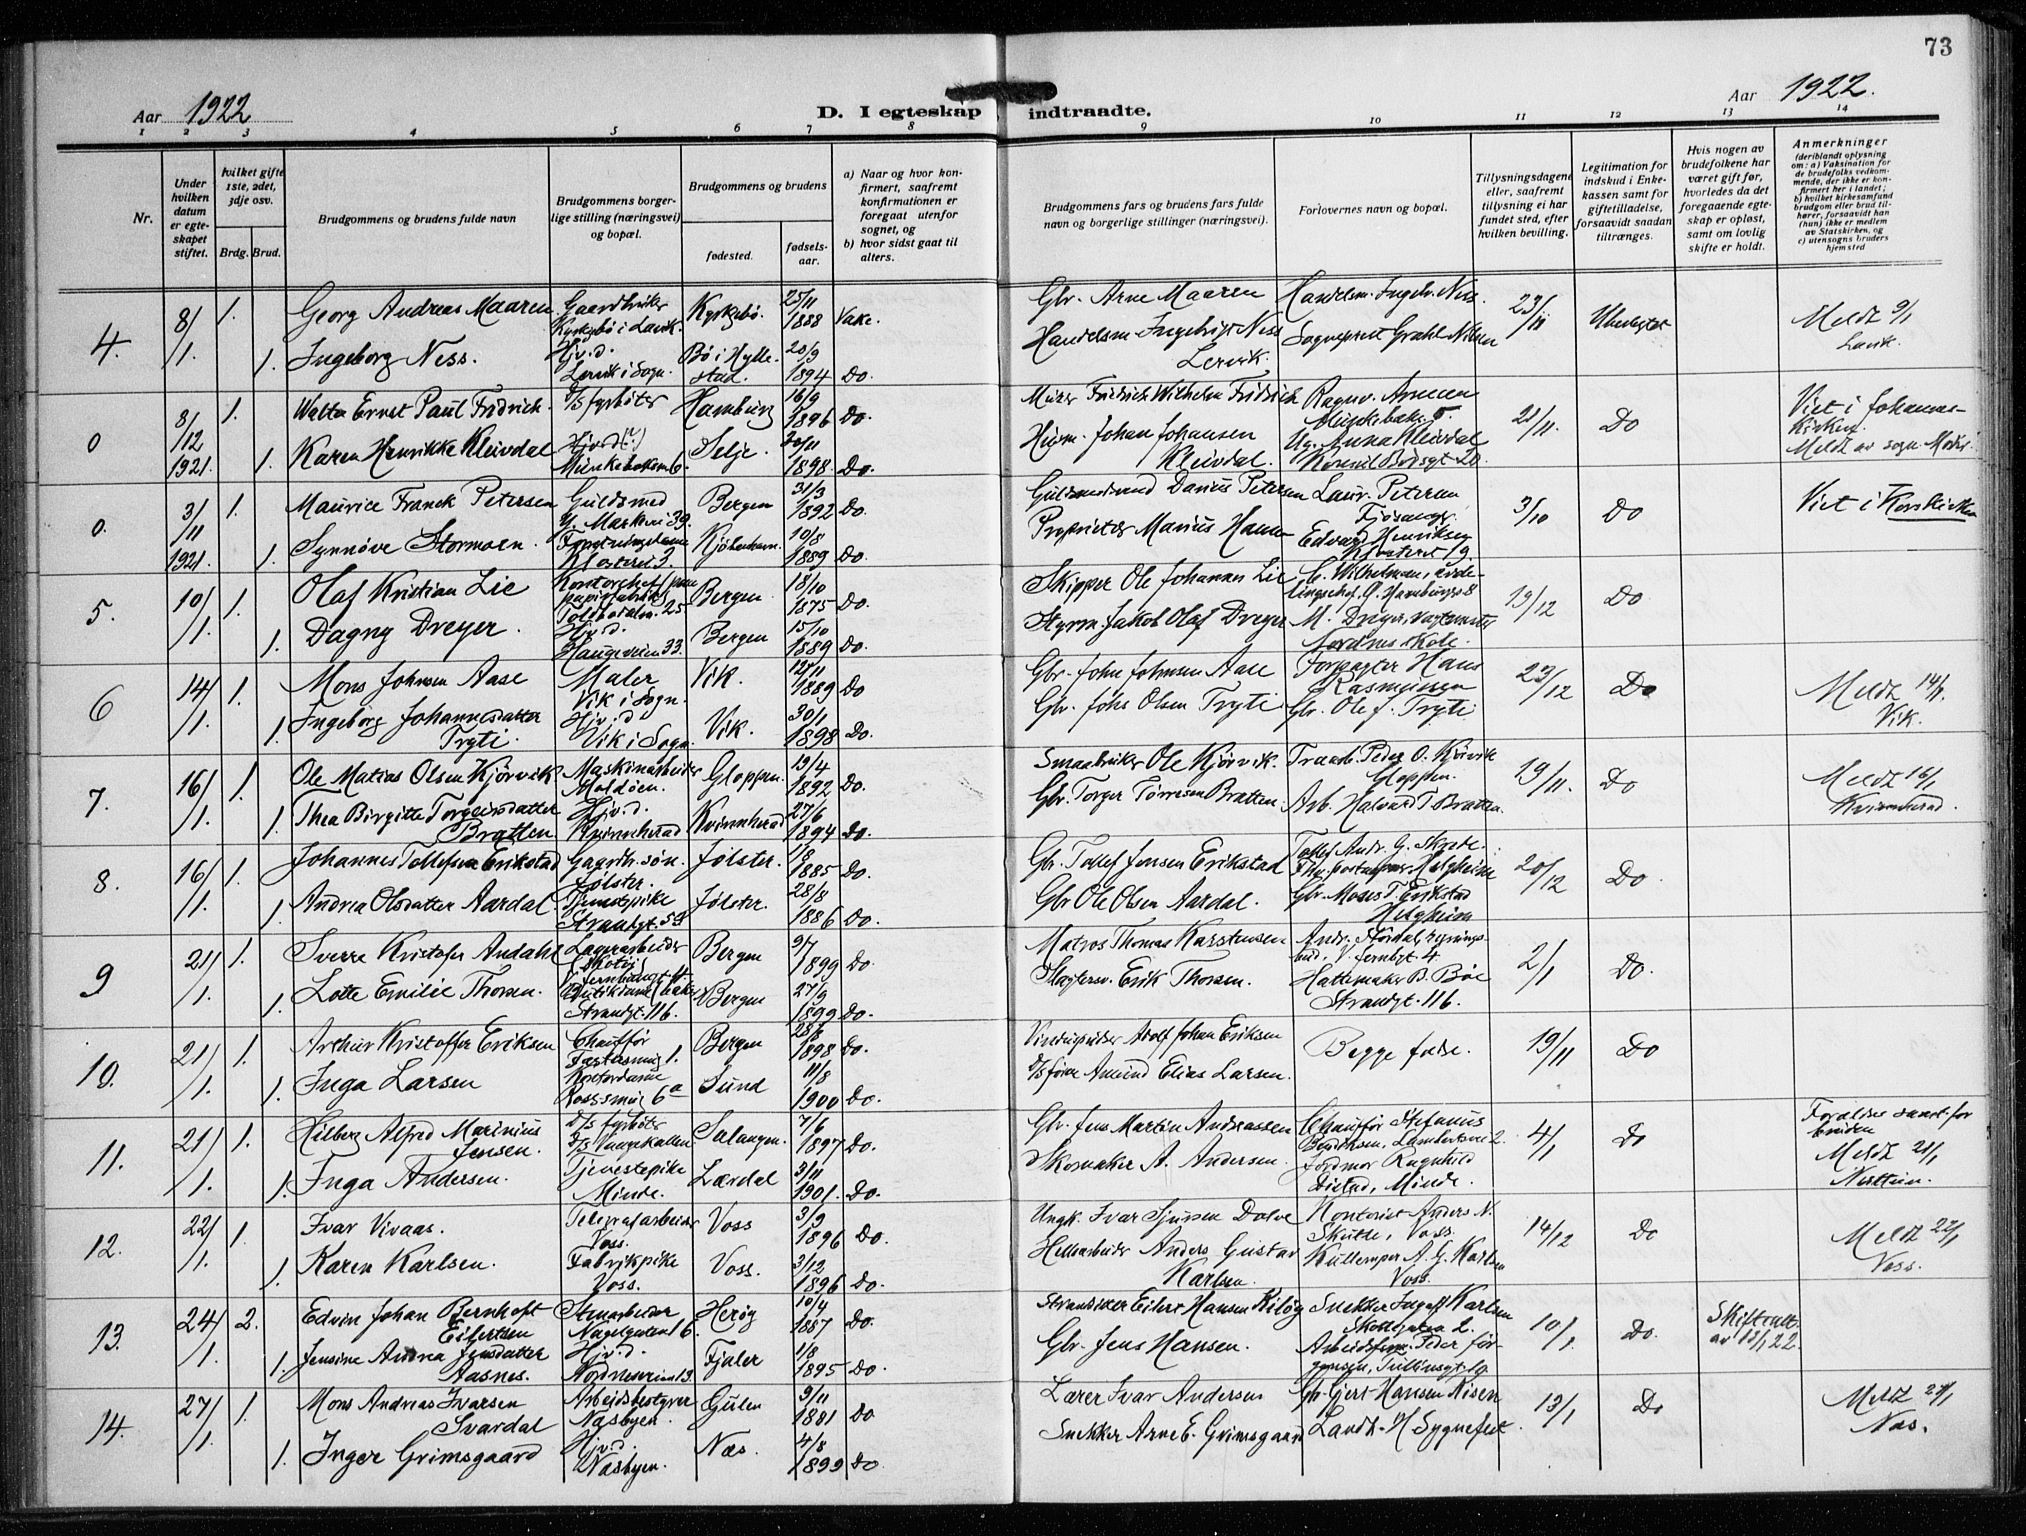 73
Aar 1922
D. I egteskap indtraadte.
Aar 1922.
1 2 3 4 5 6 7 8 9 10 11 12 13 14
Nr.
Under hvilken datum er egteskapet stiftet.
hvilket gifte 1ste, 2det, 3dje osv.
Brdg. Brud.
Brudgommens og brudens fulde navn
Brudgommens borgerlige stilling (næringsvei) og bopæl.
Brudgommens og brudens
fødested.
fødselsaar.
a) Naar og hvor konfirmert, saafremt konfirmationen er foregaat utenfor sognet, og
b) hvor sidst gaat til alters.
Brudgommens fars og brudens fars fulde navn og borgerlige stillinger (næringsvei).
Forlovernes navn og bopæl.
Tillysningsdagene eller, saafremt tillysning ei har fundet sted, efter hvilken bevilling.
Legitimation for indskud i Enkekassen samt for giftetilladelse, forsaavidt saadan tiltrænges.
Hvis nogen av brudefolkene har været gift før, hvorledes da det foregaaende egteskap er opløst, samt om lovlig skifte er holdt.
Anmerkninger
(deriblandt oplysning om: a) Vaksination for de brudefolks vedkommende, der ikke er konfirmert her i landet; b) hvilket kirkesamfund brudgom eller brud tilhører, forsaavidt han (hun) ikke er medlem av Statskirken, og c) utensogns bruders hjemsted
4. 8/1. 1. Georg Andreas Maaren Gaardbruker Kyrkjebö i Lavik. Kyrkjebö. 25/11 1888 Vake. Gbr. Arne Maaren Handelsm. Ingebr. Ness. 23/11 Ubeslegtet Meldt 9/1 Lavik.
1. Ingeborg Ness. Hjv.d. Lervik i Sogn. Bö i Hyllestad. 20/9 1894 Do. Handelsm Ingebrigt Ness Lervik. Sogneprest Grahl Nilsen
0 8/12 1921. 1. Walter Ernst Paul Fridrich. D/S fyrböter Hamburg 16/9 1896 Do. Murer Fridrich Wilhelm Fridrich Ragnv. Munkebakg. 21/11. Do Viet i Johanneskirken. Meldt av sogn
1. Karen Henrikke Kleivdal Hjv.d. (?) Munkebakken 6. Selje. 20/11 1898 Do. Johan Johansen Kleivdal. Anna Kleivdal
0. 3/11 1921. 1. Maurice Franck Petersen Guldsmed Marken 39. Bergen 31/3 1892 Do. Darius Petersen Laur. Petersen Fjösanger. 3/10 Do Viet i Korskirken
1. Synnöve Stormoen. Klosteret 3. Kjöbenhavn. 10/8 1889 Do. Proprietær Marius Hansen Edvard Henriksen Klosteret 19.
5. 10/1. 1. Olaf Kristian Lie Kontorchef Toldbodalm. 25 Bergen 18/10 1875 Do. Skipper Ole Johannes Lie C. Wilhelmsen, avdelingschef, 19/12 Do
1. Dagny Dreyer. Hjv.d. Haugeveien 33. Bergen 15/10 1889 Do. Styrm. Jakob Olaf Dreyer M. Dreyer, vagtmester Nordnes skole.
6 14/1. 1. Mons Johnsen Aase Maler Vik i Sogn. Vik. 12/11 1889 Do Gbr. John Johnsen Aase Forpagter Hans Rasmussen 23/12 Do Meldt 14/1. Vik.
1. Ingeborg Johannesdatter Tryti. Hjv.d Vik i Sogn. Vik. 30/1 1898 Do. Gbr. Johs Olsen Tryti Gbr. Ole J. Tryti
7. 16/1. 1. Ole Matias Olsen Kjörvik Maskinarbeider Maldöen. Gloppen. 19/4 1892 Do. Smaabruker Ole Kjörvik. Peder O. Kjörvik Gloppen. 19/11. Do Meldt 16/1 Kvinnherad.
1. Thea Birgitte Torgeirsdatter Bratten. Hjv.d. Kvinnherad Kvinnherad 27/6 1894 Do. Gbr. Torger Törresen Bratten. Arb. Halvard T. Bratten.
8. 16/1. 1. Johannes Tollefsen Erikstad Gaardbr. sön. Jölster. Jölster. 1/8 1885 Do. Gbr. Tollef Jensen Erikstad Andr. G. Skrede. Helgheim 20/12 Do.
1. Andrea Olsdatter Aardal. Tjenestpike Strandgt. 53 Jölster. 28/8 1886 Do. Gbr Ole Olsen Aardal. Gbr. Moses T. Erikstad Helgheim
9 21/1. 1. Sverre Kristofer Andahl Lagerarbeider Bergen 9/7 1899 Do. Matros Thomas Karstensen 2/1 Do.
1. Lotte Emilie Thorsen. Strandgt. 116. Bergen 27/9 1899 Do. Slagterm. Erik Thorsen. Hattemaker B. Böe Strandgt. 116.
10. 21/1. 1. Arthur Kristoffer Eriksen Chauffør Bergen 28/6 1898 Do. Adolf Johan Eriksen Begge fedre. 19/11 Do
1. Inga Larsen Kontordame Sund 11/8 1900 Do. Amund Elias Larsen.
11. 21/1. 1. Hilberg Alfred Marinius Jensen. D/S fyrböter Salangen. 7/6 1897 Do. Gbr. Jens Martin Andreassen Chauffør Stefanus 4/1 Do Meldt 21/1
1. Inga Andersen. Tjenestepike Minde. Lærdal 3/11 1901. Do. Skomaker A. Andersen. Jordmor Ragnhild Minde.
12. 22/1. 1. Ivar Vivaas. Telegrafarbeider Voss. Voss 3/9 1896 Do. Ungk. Ivar Sjursen Dolve Kontorist Anders N. Skutle, Voss. 14/12 Do Meldt 22/1 Voss.
1. Karen Karlsen. Fabrikpike Voss. Voss. 3/12 1896 Do. Hellearbeider Anders Gustav Karlsen. A. G. Karlsen Voss.
13. 24/1. 2. Edvin Johan Bernhoft Eilertsen Stenarbeider Nagelgaten 6. Heröy 10/4 1887 Do. Strandsitter Eilert Hansen Snekker Ingolf Karlsen 2. 10/1 Do. Skifteatt. av 12/1 22.
1. Jensine Andrea Jensdatter Aasnes. Hjv.d. Nordnesveien 13. Fjaler 1/8 1895 Do. Gbr. Jens Hansen. Peder Jörgensen, Tullinsgt. 19.
14. 27/1. 1. Mons Andreas Ivarsen Svardal Arbeidsbestyrer Næsbyen. Gulen 9/11 1881 Do Lærer Ivar Andersen Gbr. Gjert Hansen Risen 13/1 Do Meldt 27/1 Næs.
1. Inger Grimsgaard Hjv.d. Næsbyen. Næs. 4/8 1899 Do. Snekker Arne E. Grimsgaard Landh. H Sygnefest